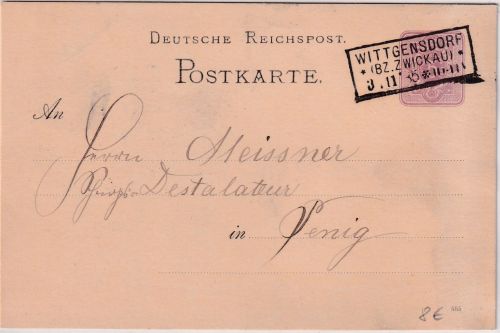 DEUTSCHE REICHSPOST.
POSTKARTE.
WITTGENSDORF
* (BZ.ZWICKAU) *
An
Herrn Meissner
Destalateur
in Penig
8€